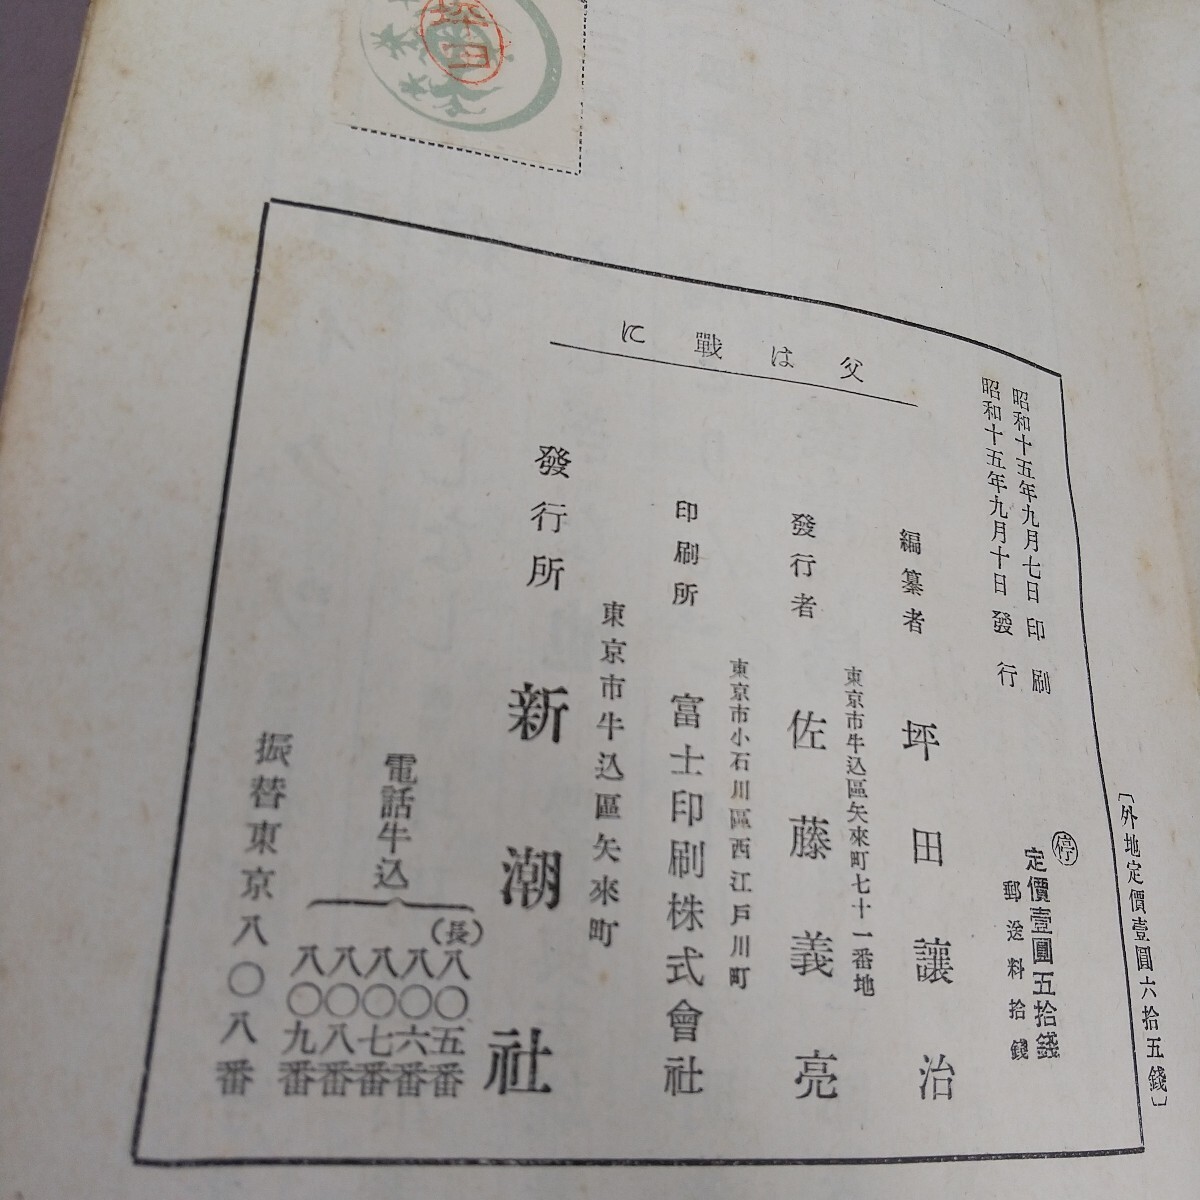 坪田
昭和十五年九月七日印刷
昭和十五年九月十日發行
〔外地定價壹圓六拾五錢〕
停
定價壹圓五拾錢
郵送料拾錢
父は戰に
編纂者 坪田讓治
東京市牛込區矢來町七十一番地
發行者 佐藤義亮
東京市小石川區西江戸川町
印刷所 富士印刷株式會社
東京市牛込區矢來町
發行所 新潮社
電話牛込
(長)八〇五番
八〇六番
八〇七番
八〇八番
八〇九番
振替東京八〇八番